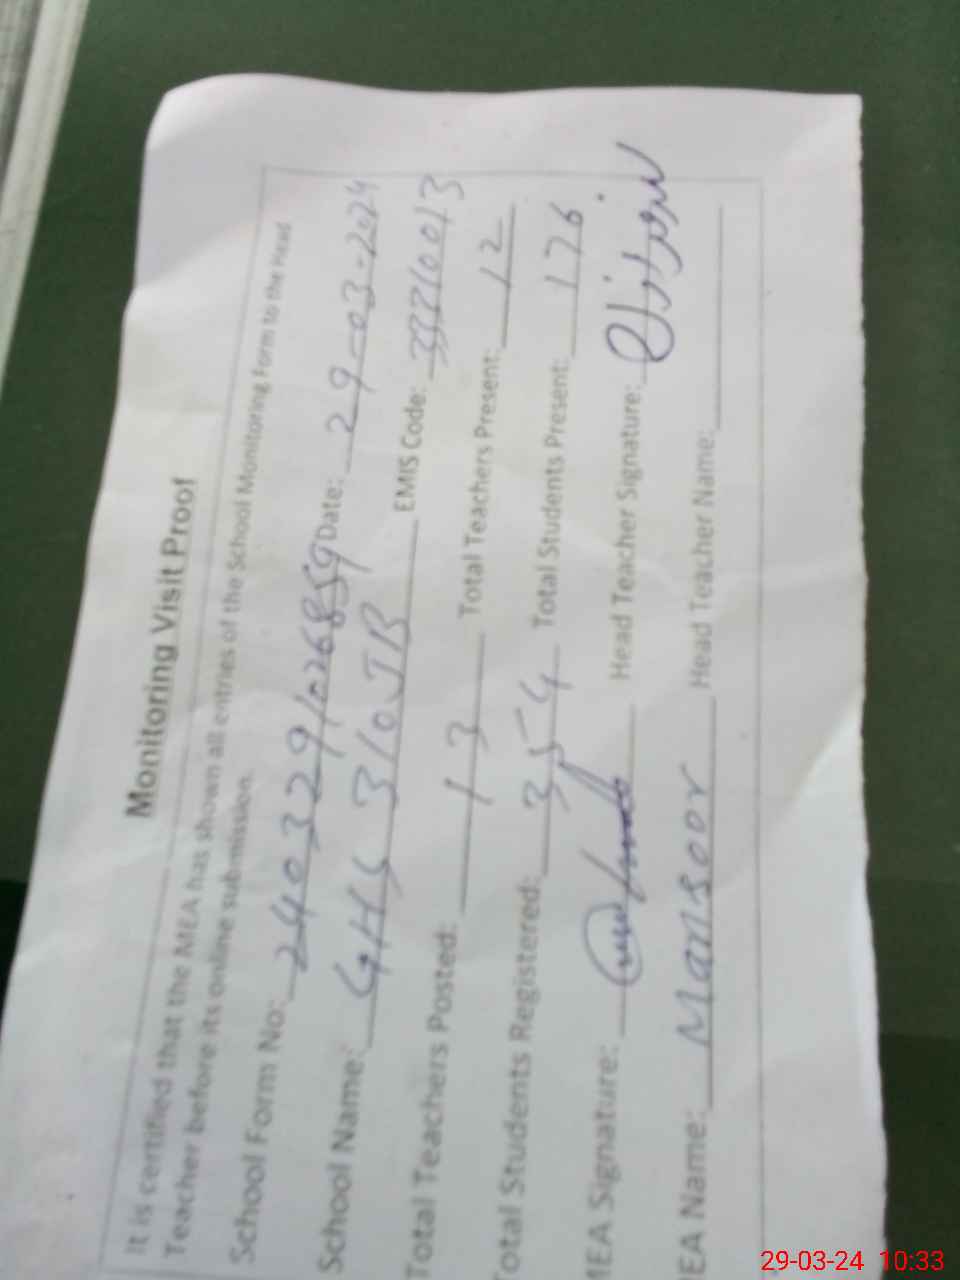 Monitoring Visit Proof
It is certified that the MEA has shown all entries of the School Monitoring Form to the Head
Teacher before its online submission.
School Form No: 2403291026859 Date: 29-03-2024
School Name: GHS 310 JB EMIS Code: 33210013
Total Teachers Posted: 13 Total Teachers Present: 12
Total Students Registered: 354 Total Students Present: 176
MEA Signature: Head Teacher Signature:
MEA Name: Mansoor Head Teacher Name:
29-03-24 10:33